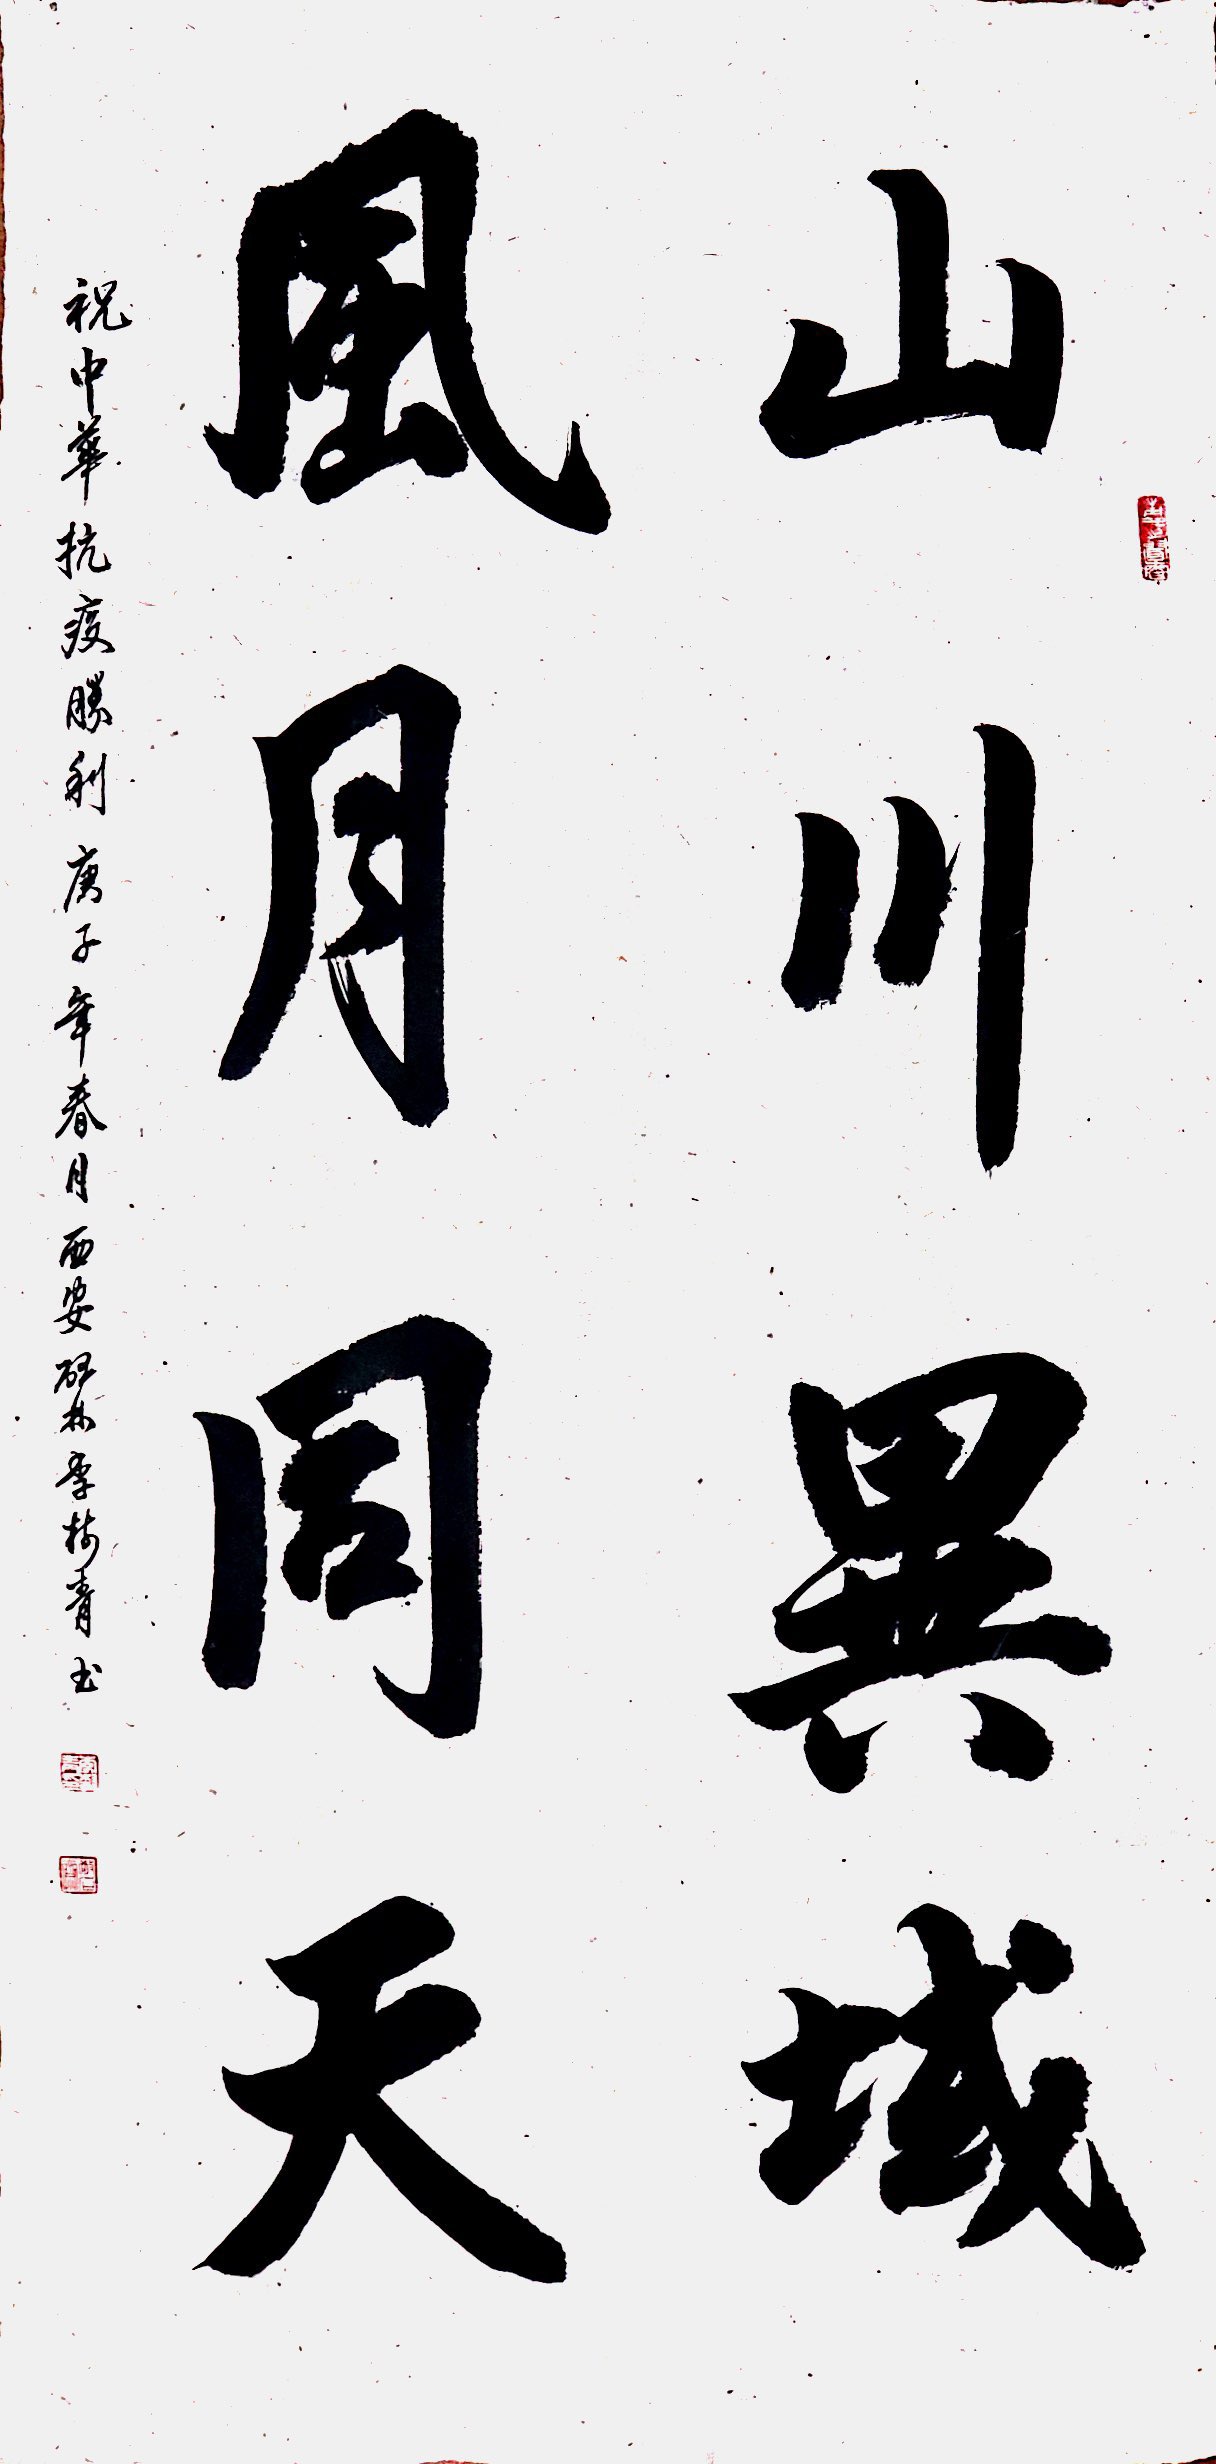 山川異域
風月同天
祝中華抗疫勝利庚子年春月西安碑林李樹青书